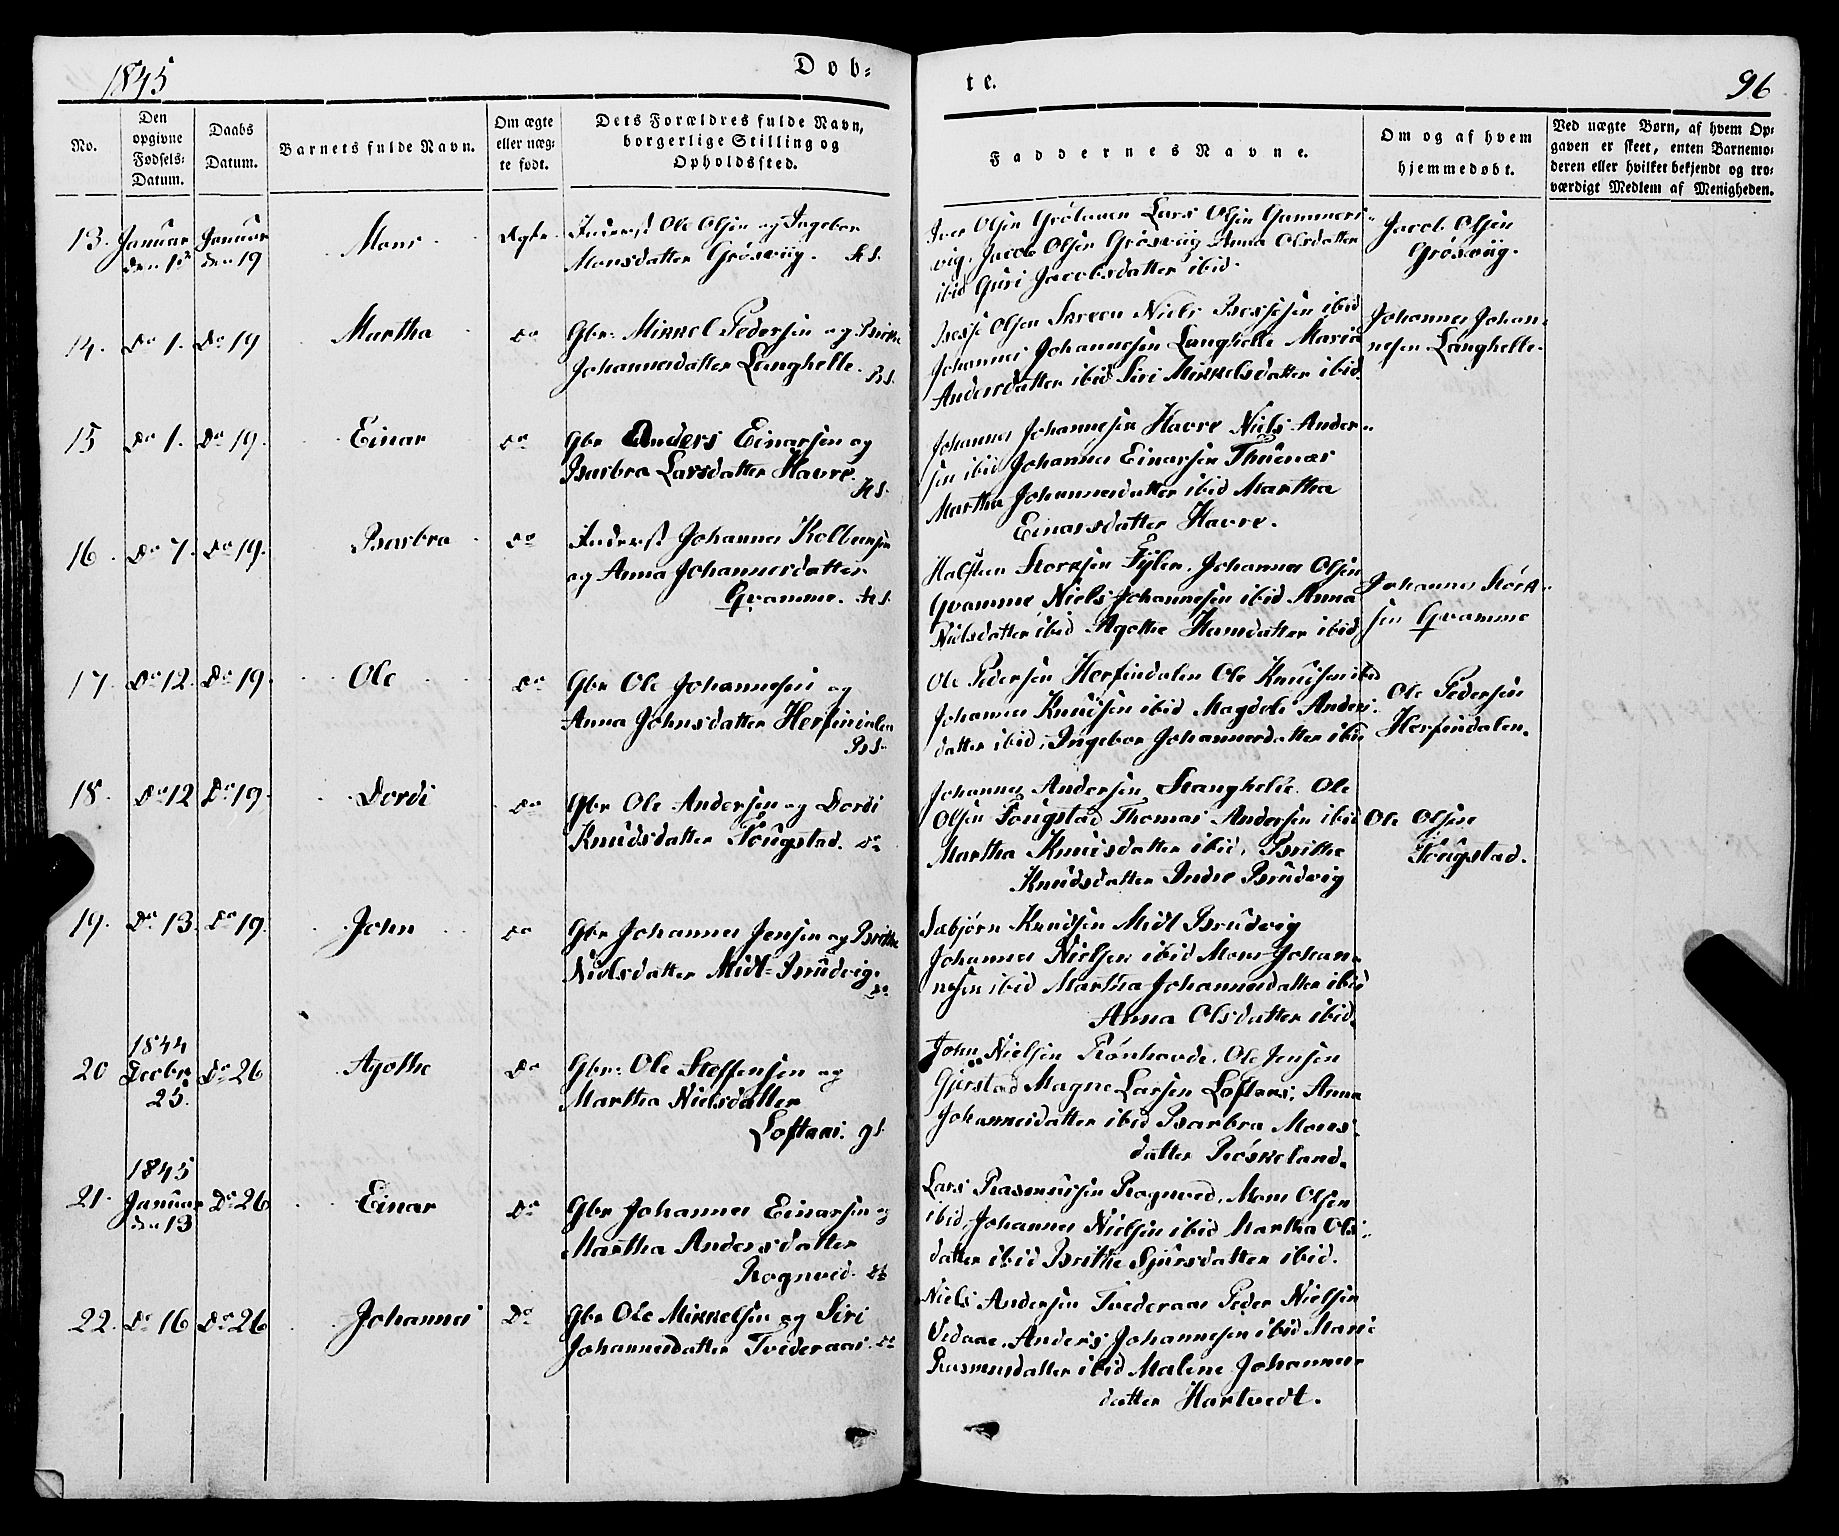 1845
Døb-
te.
96
No.
Den opgivne Fødsels-Datum.
Daabs Datum.
Barnets fulde Navn.
Om ægte eller uægte født.
Dets Forældres fulde Navn, borgerlige Stilling og Opholdssted.
Faddernes Navne.
Om og af hvem hjemmedøbt.
Ved uægte Børn, af hvem Opgaven er skeet, enten Barnemoderen eller hvilket bekjendt og troværdigt Medlem af Menigheden.
13. Januar Januar
den 19
Mons
Inderst Ole Olsen og Ingebor
Monsdatter Grøsviig.
Iver Olsen Lars Olsen Gammers-
vig. Jacob Olsen Grøsviig Anna Olsdatter
ibid Guri Jacobsdatter ibid.
Jacob Olsen
Grøsviig.
14. Do 1. Do 19
Martha
Do
Gbr: Mikkel Pedersen og Brithe
Johannesdatter Langhelle. BS.
Olsen Niels ibid
Johannes Johannesen Langhelle Maria
Andersdatter ibid Siri Mikkelsdatter ibid.
Johannes Johan-
nesen Langhelle.
15 Do 1. Do 19.
Einar
Do
Gbr Anders Einarsen og
Barbra Larsdatter Havre.
HS.
Johannes Johannesen Havre Niels Ander-
sen ibid Johannes Einarsen
Martha Johannesdatter ibid Martha
Einarsdatter Havre.
16. Do 7. Do 19.
Barbra
Do
Inderst Johannes Kolbensen
og Anna Johannesdatter
Qvamme. HS.
Halsteen Storksen Fylen. Johannes Olsen
Qvamme, Niels Johannesen ibid Anna
Nielsdatter ibid Agothe ibid
Johannes Størk-
sen Qvamme
17. Do 12. Do 19.
Ole
Do
Gbr Ole Johannesen og
Anna Johnsdatter Herfindalen
BS.
Ole Pedersen Herfindalen Ole Knudsen ibid
Johannes Knudsen ibid Magdeli Anders-
datter ibid, Ingebor Johannesdatter ibid
Ole Pedersen
Herfindalen.
18. Do 12 Do 19.
Dordi
Do
Gbr Ole Andersen og Dordi
Knudsdatter Fougstad. Do
Johannes Andersen Stanghelle. Ole
Olsen Fougstad Thomas Andersen ibid
Martha Knudsdatter ibid, Brithe
Knudsdatter Indre Brudvig
Ole Olsen
Fougstad.
19. Do 13. Do 19.
John
Do
Gbr Johannes Jensen og Brithe
Nielsdatter Midt-Brudvig.
Do
Sæbjørn Knudsen Midt Brudvig
Johannes Nielsen ibid Mons Johan-
nesen ibid Martha Johannesdatter ibid
Anna Olsdatter ibid.
20
1844
Decbr
25.
Do 26
Agothe
Do
Gbr: Ole Steffensen og
Martha Nielsdatter
Loftaas. gS.
John Nielsen Rønhovde. Ole Jensen
Gjerstad Magne Larsen Loftaas; Anna
Johannesdatter ibid Barbra Mons-
datter Røskeland.
1845
21. Januar Do 26
den 13
Einar
Do
Gbr Johannes Einarsen og
Martha Andersdatter
Rognved. Do
Lars Rasmussen Rognved, Mons Olsen
ibid, Johannes Nielsen ibid Martha Ols-
datter ibid Brithe Sjursdatter ibid.
22. Do 16 Do 26
Johannes
Do
Gbr Ole Mikkelsen og Siri
Johannesdatter Tvederaas. Do
Niels Andersen Tvederaas Peder Nielsen
Vedaae. Anders Johannesen ibid Mari
Rasmusdatter ibid Malene Johannes-
datter Hartvedt.